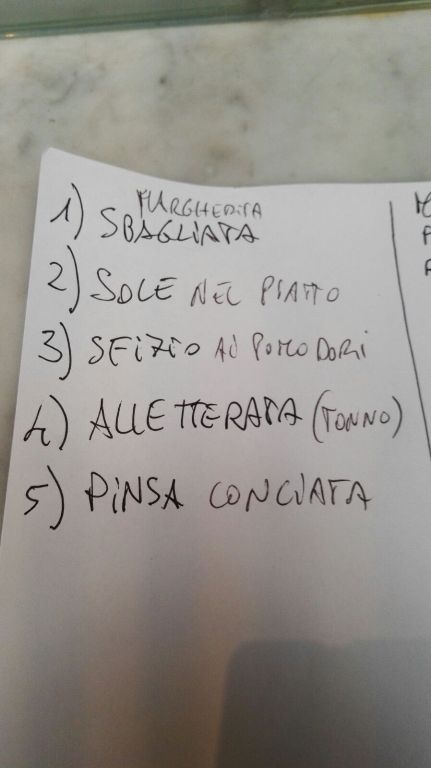 1) MARGHERITA
SBAGLIATA
2) SOLE NEL PIATTO
3) SFIZIO AI POMODORI
4) ALLETTERATA (TONNO)
5) PINSA CONCIATA